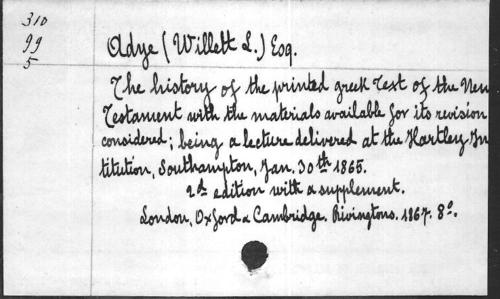 310
99
5
Adye (Willett L.) Esq.
The history of the printed greek Text of the New
Testament with the materials available for its revision
considered; being a lecture delivered at the Hartley In
titution, Southampton, Jan. 30th 1865.
2d edition with a supplement.
London, Oxford & Cambridge. Rivingtons. 1867. 8º.